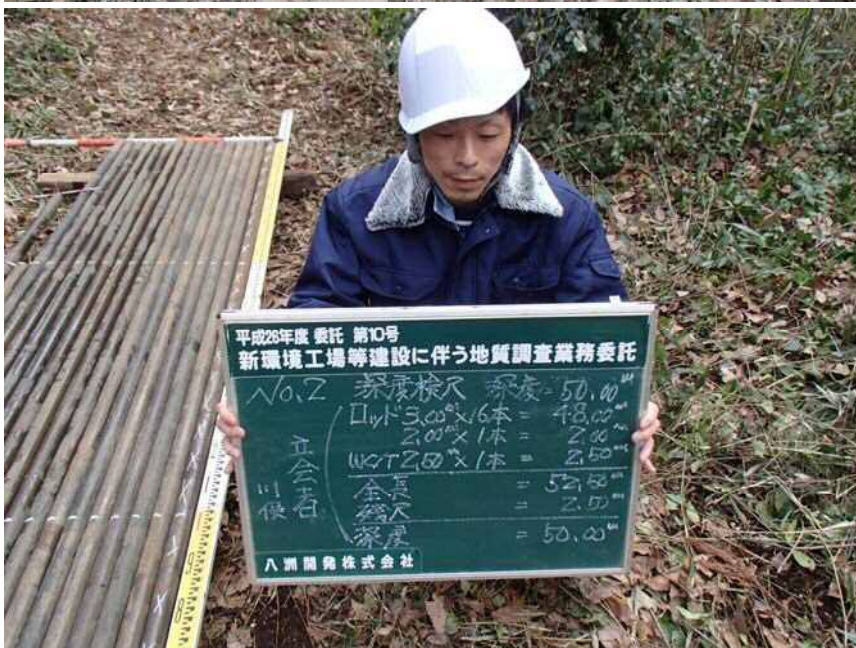 平成26年度 委託 第10号
新環境工場等建設に伴う地質調査業務委託
No.2 深度検尺 深度= 50.00m
ロッド3.00m×16本 = 48.00m
2.00m×1本 = 2.00m
2.50m×1本 = 2.50m
立会者
全長 = 52.50m
残尺 = 2.50m
深度 = 50.00m
八洲開発株式会社